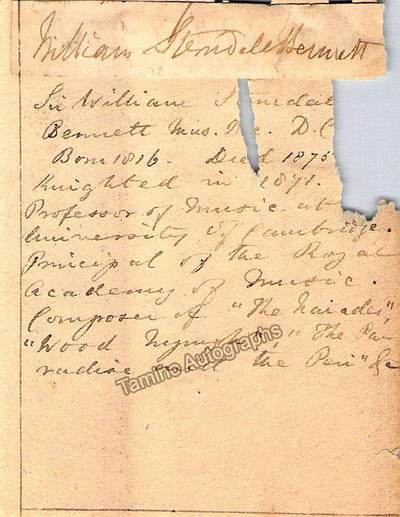 William Sterndale Bennett
Sir William Sterndal
Bennett Mus. Doc. D.C
Born 1816. Died 1875
Knighted in 1871.
Professor of Music at
University of Cambridge.
Principal of the Royal
Academy of Music.
Composer of "The Naiades",
"Wood Nymphs", "The Pa
radise and the Peri" &c
Tamino Autographs